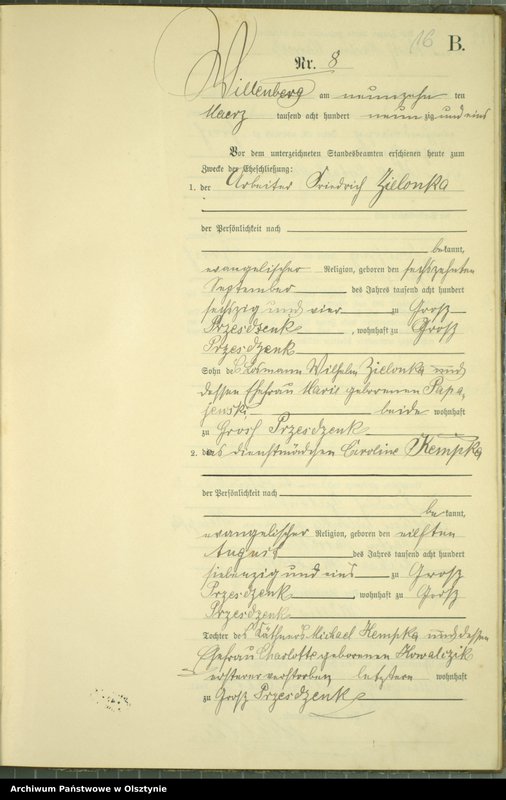 16 B.
Nr. 8
Willenberg am neunzehn ten
Maerz tausend acht hundert neunzig und eins
Vor dem unterzeichneten Standesbeamten erschienen heute zum
Zwecke der Eheschließung:
1. der Arbeiter Friedrich Zielonka
der Persönlichkeit nach
bekannt,
evangelischer Religion, geboren den sechszehnten
September des Jahres tausend acht hundert
sechszig und vier zu Grosz
Przesdzenk, wohnhaft zu Grosz
Przesdzenk
Sohn des Losmann Wilhelm Zielonka und
dessen Ehefrau Marie geborenen Papa-
jenski beide wohnhaft
zu Grosz Przesdzenk
2. das Dienstmädchen Caroline Kempka
der Persönlichkeit nach
bekannt,
evangelischer Religion, geboren den eilften
August des Jahres tausend acht hundert
siebenzig und eins zu Grosz
Przesdzenk, wohnhaft zu Grosz
Przesdzenk
Tochter des Käthners Michael Kempka und dessen
Ehefrau Charlotte geborenen Kowalczik
ersterer verstorben letztere wohnhaft
zu Grosz Przesdzenk
Archiwum Państwowe w Olsztynie